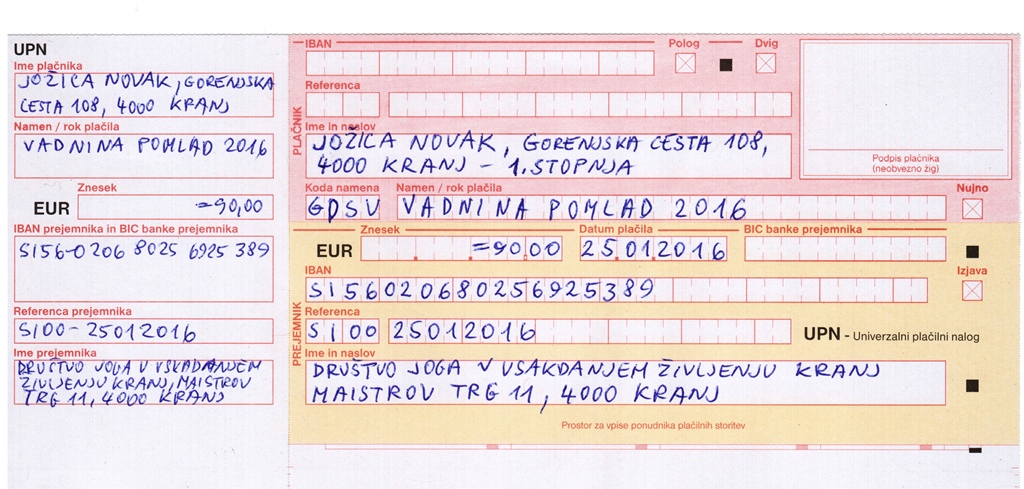 UPN
Ime plačnika
JOŽICA NOVAK, GORENJSKA
CESTA 108, 4000 KRANJ
Namen / rok plačila
VADNINA POMLAD 2016
Znesek
EUR =90,00
IBAN prejemnika in BIC banke prejemnika
SI56-0206 8025 6925 389
Referenca prejemnika
SI00-25012016
Ime prejemnika
DRUŠTVO JOGA V VSKADANJEM
ŽIVLJENJU KRANJ, MAISTROV
TRG 11, 4000 KRANJ
PLAČNIK
IBAN
Polog
Dvig
Referenca
Ime in naslov
JOŽICA NOVAK, GORENJSKA CESTA 108,
4000 KRANJ - 1. STOPNJA
Podpis plačnika
(neobvezno žig)
Koda namena Namen / rok plačila Nujno
GDSV VADNINA POMLAD 2016
PREJEMNIK
Znesek Datum plačila BIC banke prejemnika
EUR =90,00 25.01.2016
IBAN Izjava
SI56020680256925389
Referenca
SI00 25012016
UPN - Univerzalni plačilni nalog
Ime in naslov
DRUŠTVO JOGA V VSAKDANJEM ŽIVLJENJU KRANJ
MAISTROV TRG 11, 4000 KRANJ
Prostor za vpise ponudnika plačilnih storitev